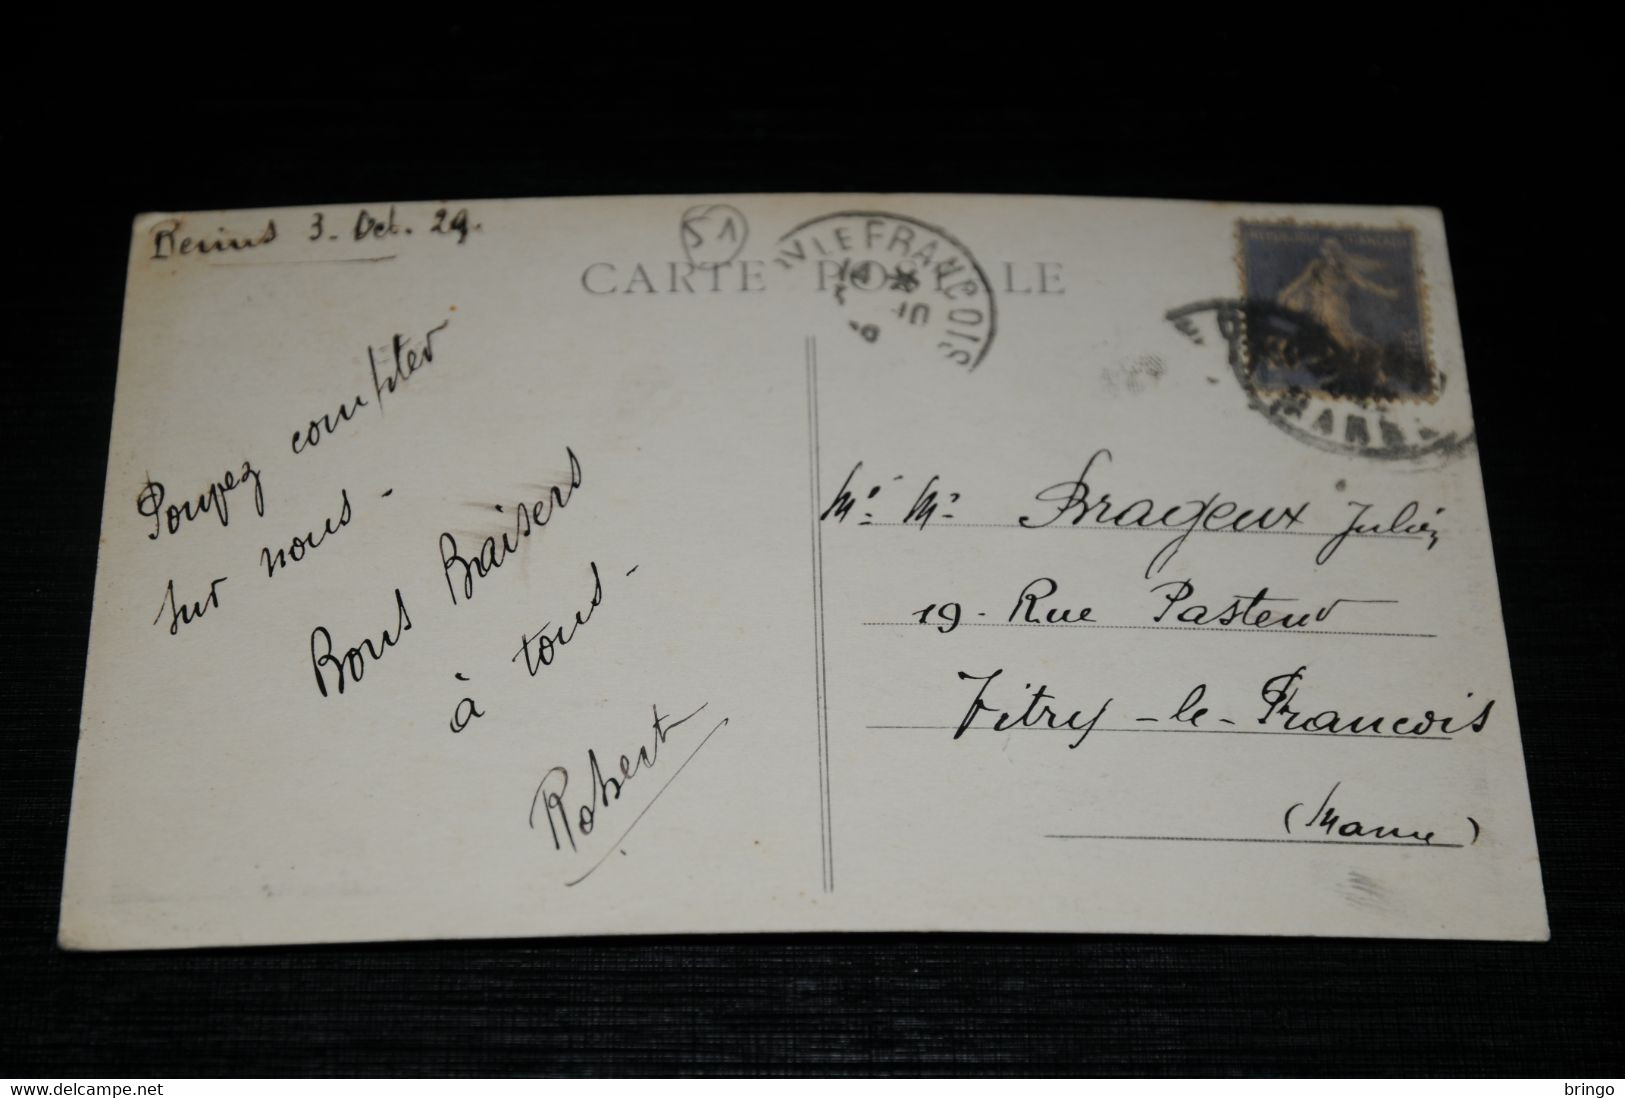 Reims 3. Oct. 29.
51
CARTE POSTALE
V LE FRANCOIS
14 * 10
REPUBLIQUE FRANCAISE
MARNE
Pouvez compter
sur nous -
Bons Baisers
à tous -
Robert
Mr. Me. Brageux Julien
19 - Rue Pasteur
Vitry - le - Francois
(Marne)
www.delcampe.net
bringo